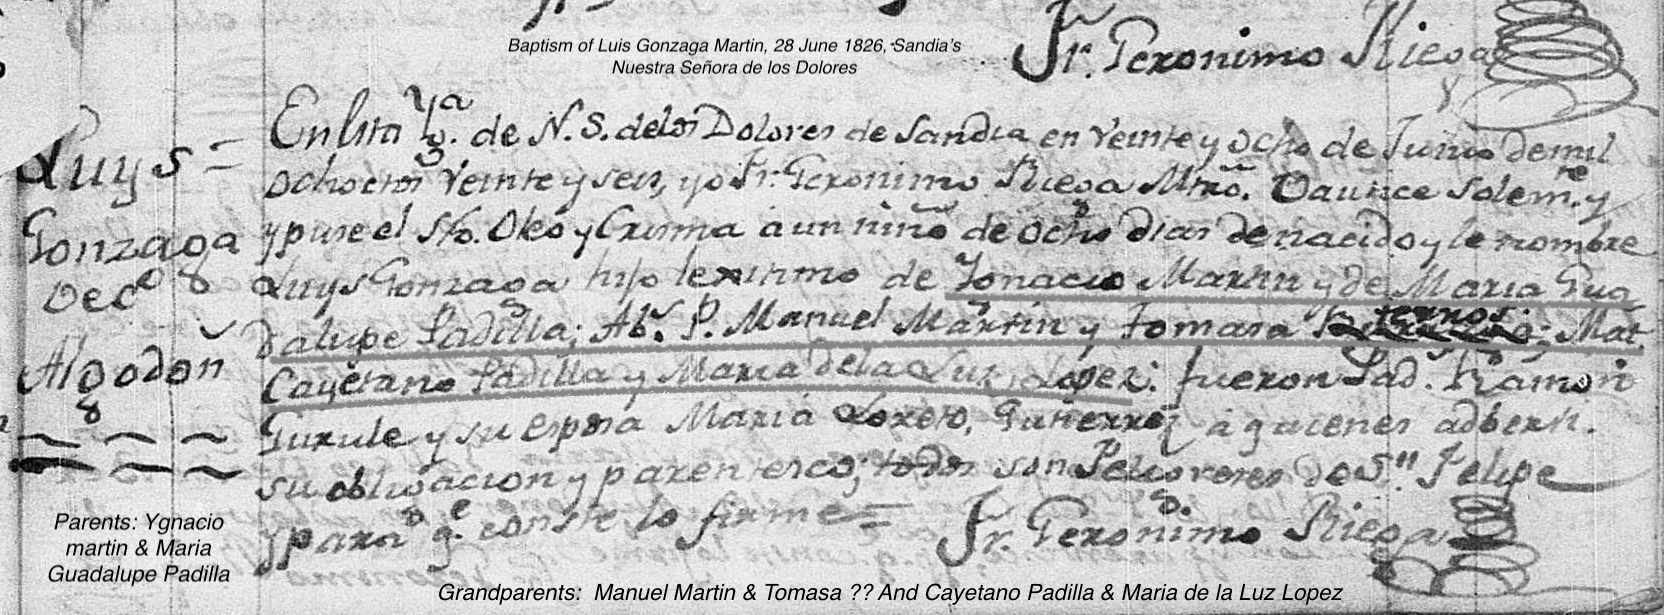 Fr. Geronimo Riega
Baptism of Luis Gonzaga Martin, 28 June 1826, Sandia's
Nuestra Señora de los Dolores
Luys =
Gonzaga
Dece
Algodon
En esta Yga. de N. S. de los Dolores de Sandia en Veinte y Ocho de Junio de mil
Ochoctos Veinte y seis, yo Fr. Geronimo Riega Mtro. Bautice Solemte. y
y puse el Sto. Oleo y Crisma a un niño de Ocho Dias de nacido y le nombre
Luys Gonzaga hijo lexitimo de Ygnacio Martin y de Maria Gua
dalupe Padilla; Abs. P. Manuel Martin y Tomasa Mat.
Cayetano Padilla y Maria de la Luz Lopez: fueron Pad. Ramon
Gurule y su esposa Maria Loreto, Gutierrez a quienes adbertí.
su obligacion y parentesco; todos son de Sn. Felipe
y para qe. conste lo firme =
Fr. Geronimo Riega
Parents: Ygnacio
martin & Maria
Guadalupe Padilla
Grandparents: Manuel Martin & Tomasa ?? And Cayetano Padilla & Maria de la Luz Lopez